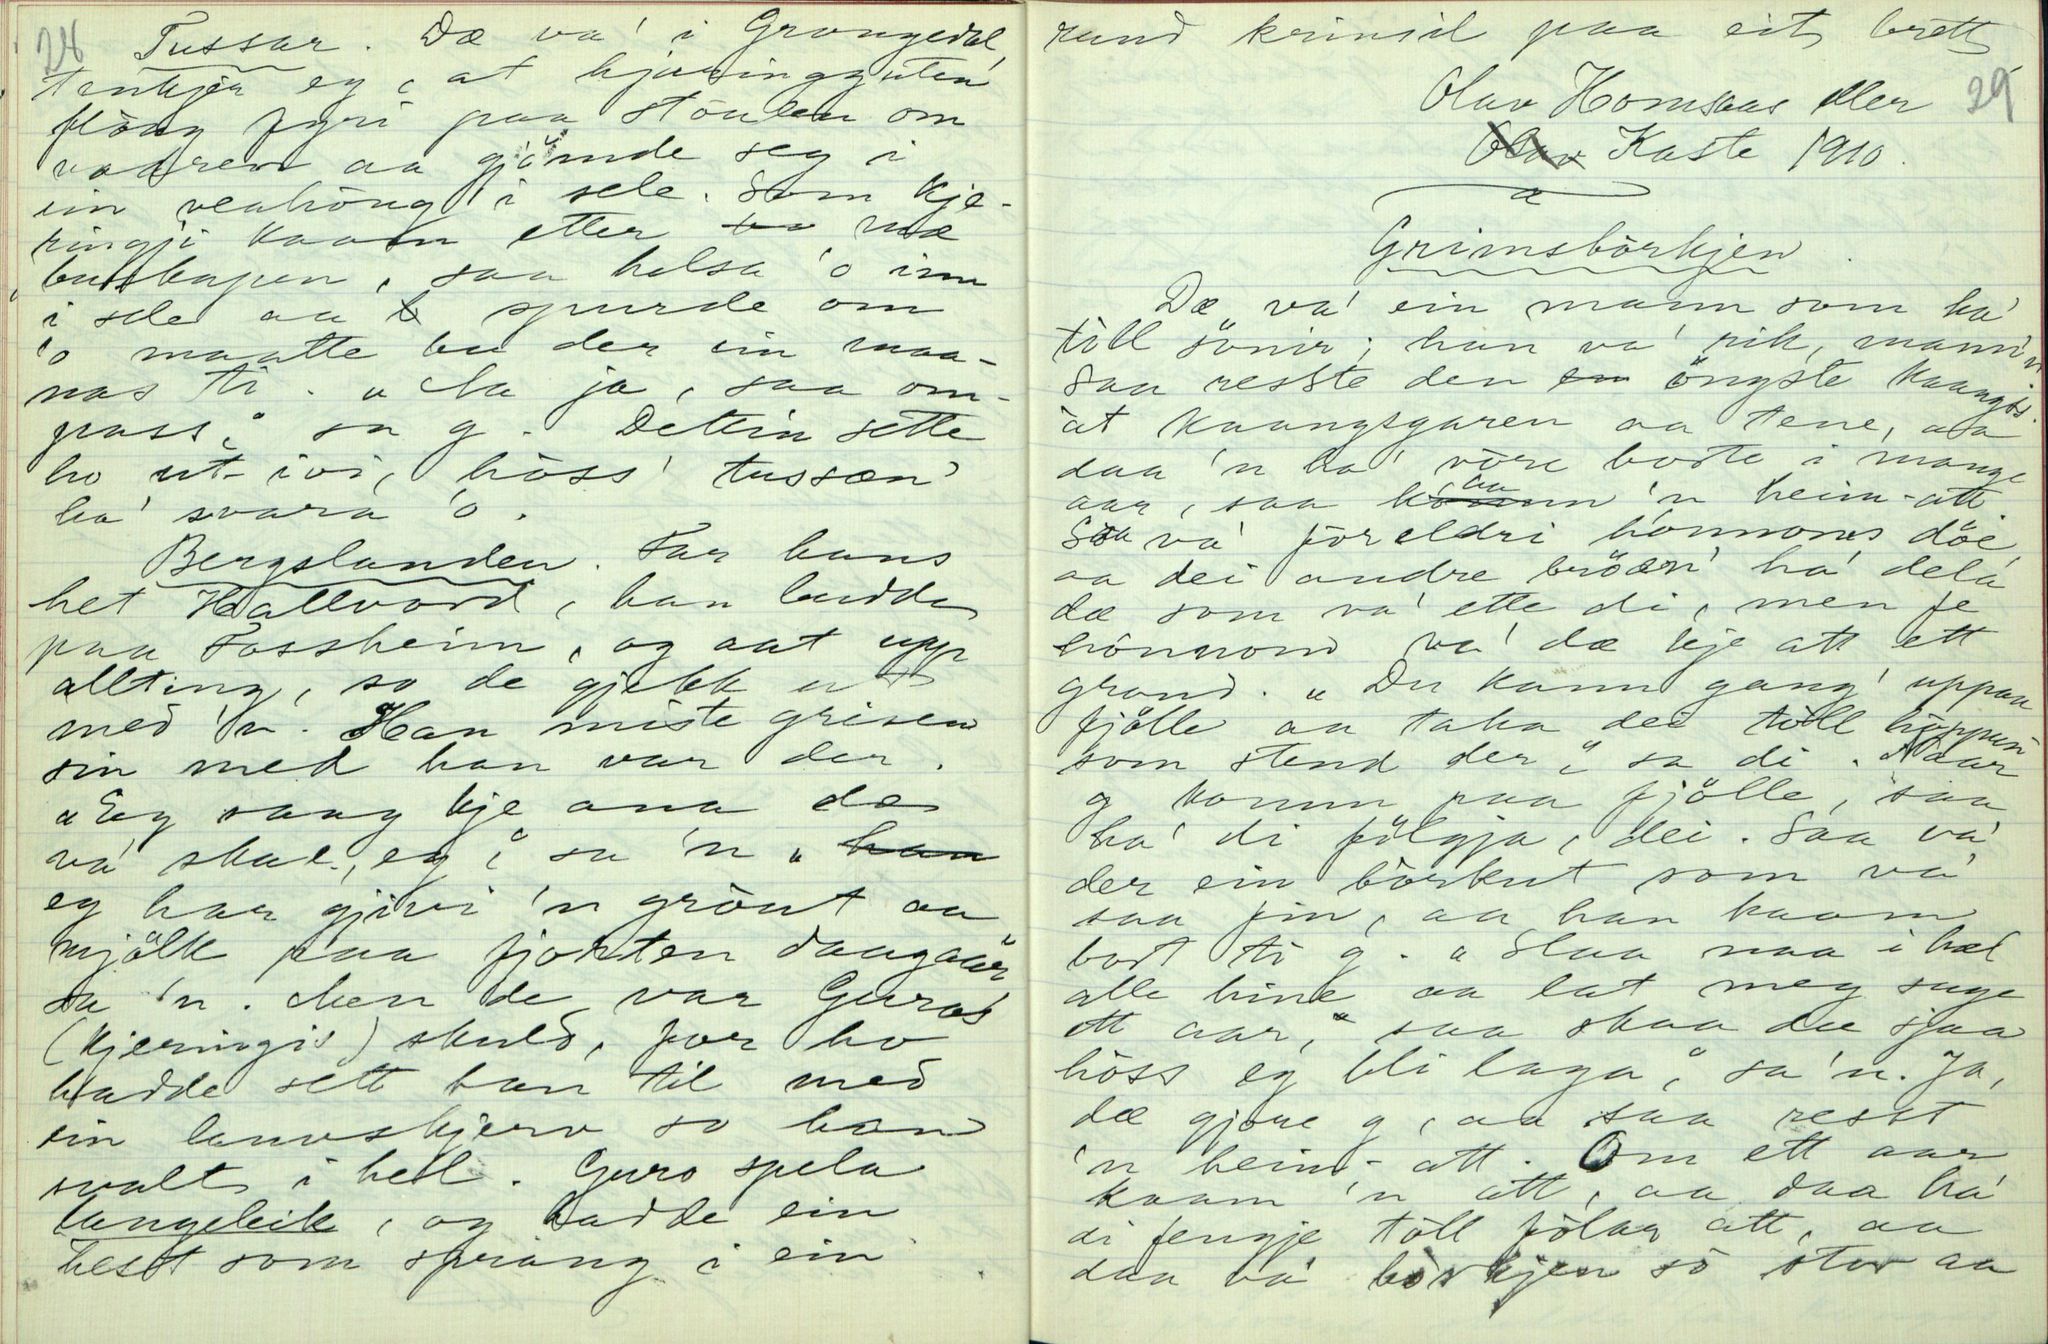 28
Tussar. Dæ va' i Grongedal,
tenkjer eg, at hjuringguten
flöug fyri paa stöulen om
vaaren aa gjömde seg i
ein veahöug i sele. Som kje-
ringji kaam etter mæ
buskapen, saa helsa 'o inn
i sele aa spurde om
'o maatte bu der ein maa-
nas ti. "Aa ja, saa om-
pass," sa g. Dettin sette
ho ut-ivi, höss' tussæn'
ha' svara 'o.
Bergslanden. Far hans
het Hallvord, han budde
paa Fossheim, og aat upp
allting, so de gjekk ut
med 'n. Han miste grisen
sin med han var der.
"Eg saag kje ana dæ
va' skae, eg," sa 'n, "han
eg har gjivi 'n grönt aa
mjölk paa fjorten daagaar"
sa 'n. Men de var Guros
(kjeringis) skuld, for ho
hadde sett han til med
ein lauvskjerv so han
svalt i hel. Guro spela
langeleik, og hadde ein
hest som sprang i ein
rund krinsil paa eit brett
29
Olav Homsaas eller
Olav Kaste 1910.
Grimsbörkjen.
Dæ va' ein mann som ha'
töll sönir; han va' rik, mann'n
Saa resste den öngste
åt kaangsgaren aa tene, aa
daa 'n ha' vöre borte i mange
aar, saa kaam 'n heim-att.
Saa va' foreldri honnoms döe,
aa dei andre bröæn' ha' dela
dæ som va' ette di, men fe
honnom va' dæ kje att ett
grand. "Du kann gang' uppaa
fjölle aa taka dei töll höppun
som stend der," sa di. Naar
g komm paa fjölle, saa
ha' di fölgja, dei. Saa va'
der ein börkut som va'
saa fin, aa han kaam
bort ti g. "Slaa naa i hæl
alle hine aa lat meg suge
ett aar," saa skaa du sjaa
höss eg bli laga," sa 'n. Ja,
dæ gjore g, aa saa resst
'n heim-att. Om ett aar
kaam 'n att, aa daa ha'
di fengje töll fölar att, aa
daa va' börkjen so stor aa